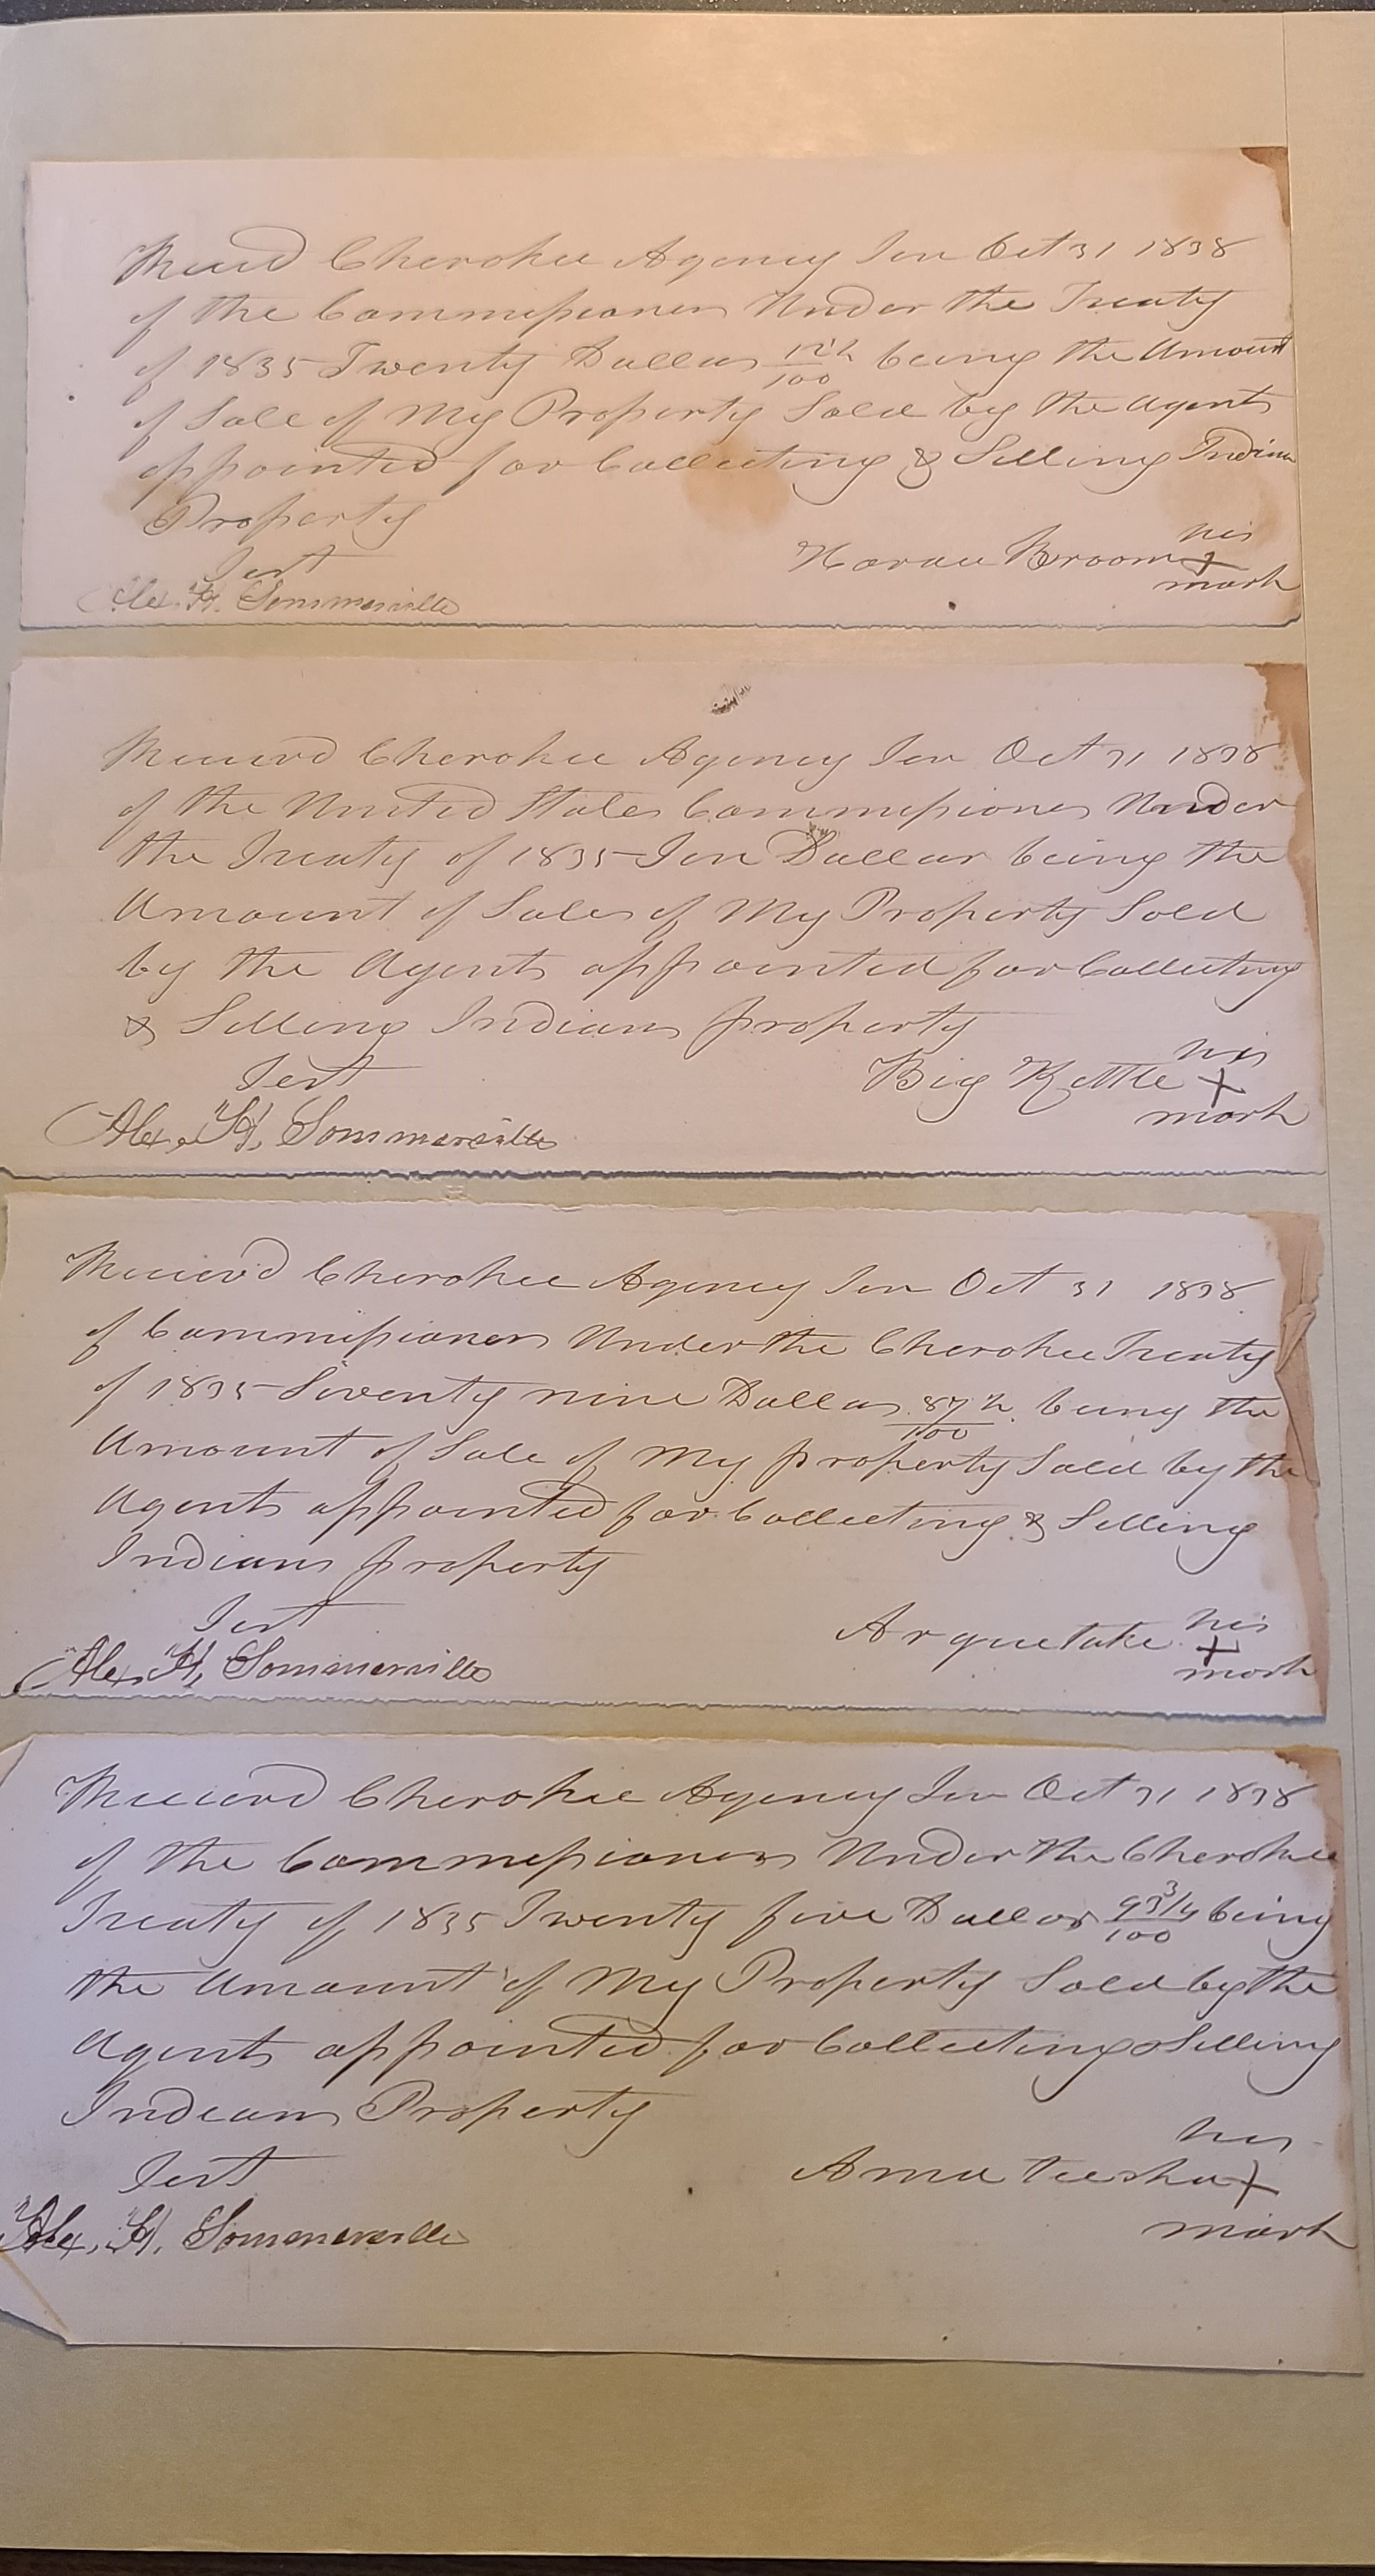 Recvd Cherokee Agency Ten Oct 31 1838
of the Commissioners Under the Treaty
of 1835 Twenty Dollars 12½/100 being the Amount
of Sale of My Property Sold by the Agents
appointed for Collecting & Selling Indian
Property
Test
his
Broom X
mark
Alex. H. Sommerville
Received Cherokee Agency Ten Oct 31 1838
of the United States Commissioners Under
the Treaty of 1835 Ten Dollars being the
Amount of Sales of My Property Sold
by the Agents appointed for Collecting
& Selling Indians property
Test
his
Big Kettle X
mark
Alex. H. Sommerville
Received Cherokee Agency Ten Oct 31 1838
of Commissioners Under the Cherokee Treaty
of 1835 Seventy nine Dollars 87½/100 being the
Amount of Sale of My property Sold by the
Agents appointed for Collecting & Selling
Indians property
Test
his
Arquetake X
mark
Alex. H. Sommerville
Received Cherokee Agency Ten Oct 31 1838
of the Commissioners Under the Cherokee
Treaty of 1835 Twenty five Dollars 93¾/100 being
the Amount of My Property Sold by the
Agents appointed for Collecting & Selling
Indians Property
Test
his
Ama teesha X
mark
Alex. H. Sommerville